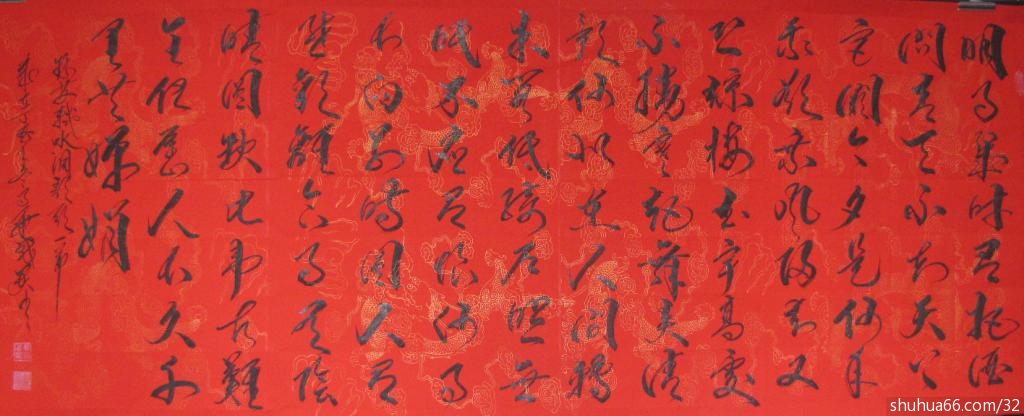 明月几时有把酒
问青天不知天上
宫阙今夕是何年
我欲乘风归去又
恐琼楼玉宇高处
不胜寒起舞弄清
影何似在人间转
朱阁低绮户照无
眠不应有恨何事
长向别时圆人有
悲欢离合月有阴
晴圆缺此事古难
全但愿人长久千
里共婵娟
苏轼水调歌头一首
shuhua66.com/32